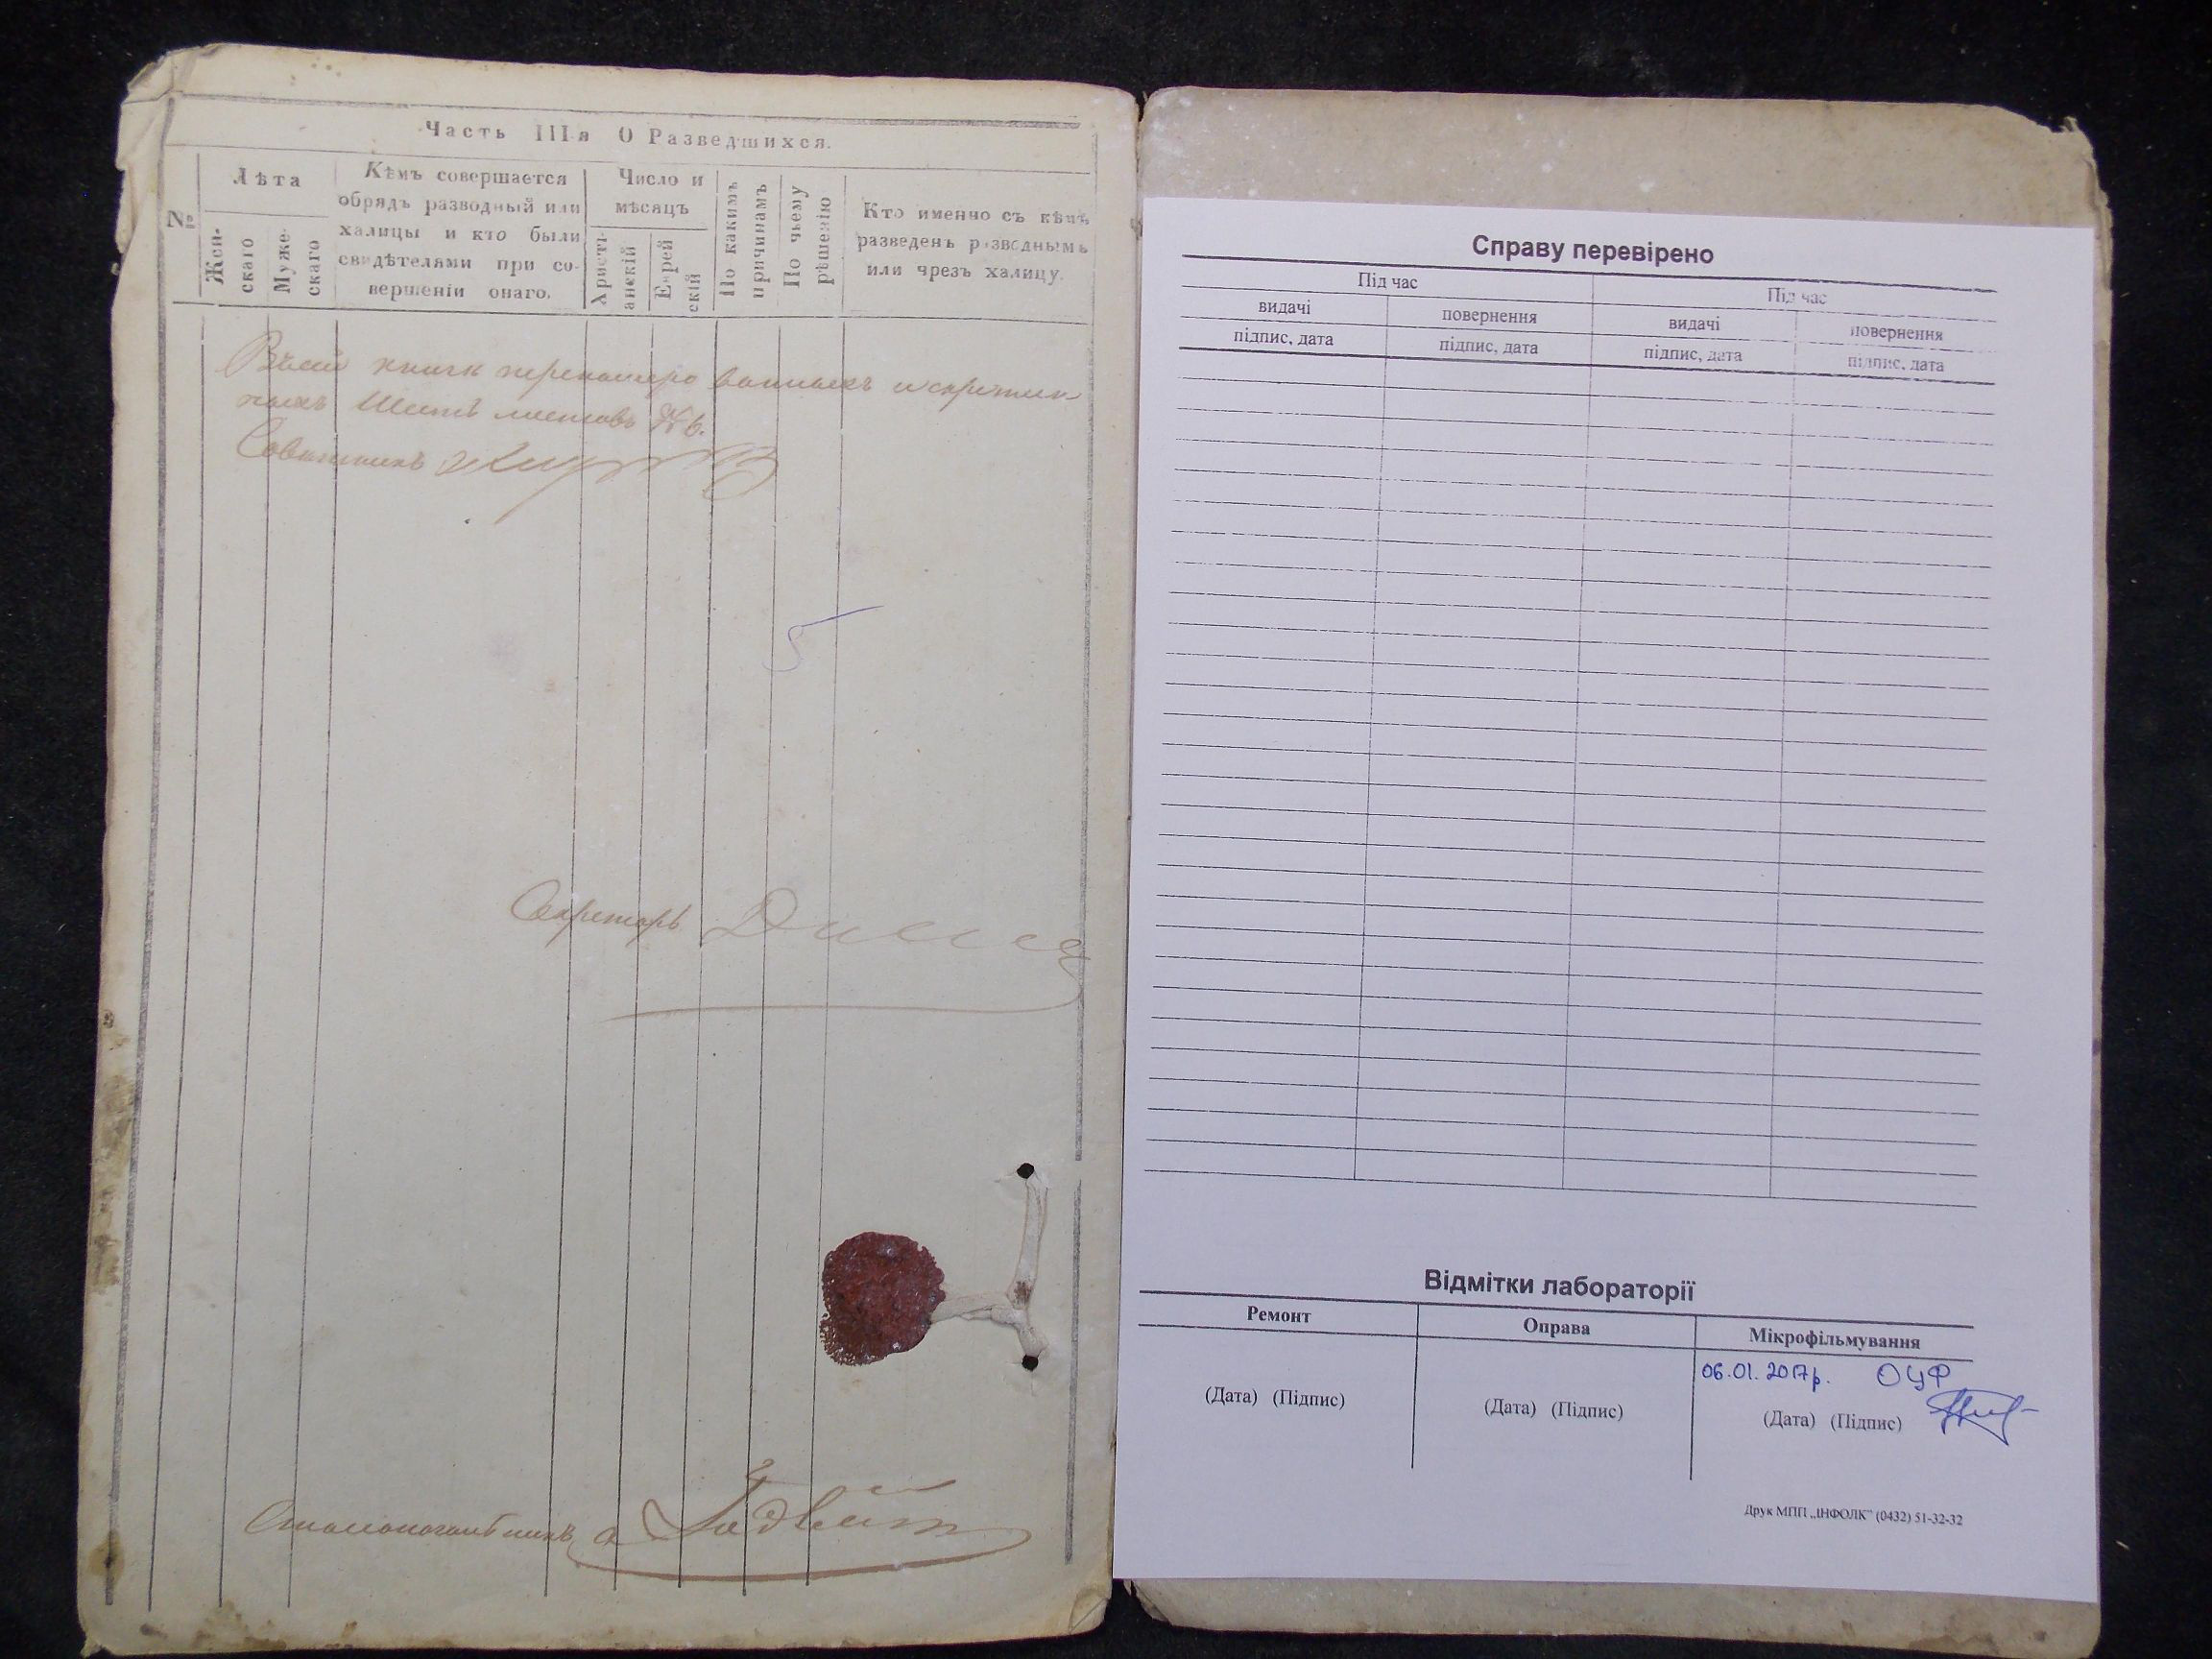 Часть IIIя О Разведшихся.
№
Лѣта
Женскаго
Мужескаго
Кѣмъ совершается
обрядъ разводный или
халицы и кто были
свидѣтелями при со-
вершеніи онаго.
Число и
мѣсяцъ
Христі-
анскій
Еврей
скій
По какимъ
причинамъ
По чьему
рѣшенію
Кто именно съ кѣмъ
разведенъ разводнымъ
или чрезъ халицу.
Въ сей книгѣ перенумерованныхъ и скрѣпленныхъ Шесть листовъ № 6.
Совѣтникъ
5
Секретарь
Столоначальникъ
Справу перевірено
Під час
Під час
видачі
повернення
видачі
повернення
підпис, дата
підпис, дата
підпис, дата
підпис, дата
Відмітки лабораторії
Ремонт
Оправа
Мікрофільмування
06.01.2017р. ОЦФ
(Дата) (Підпис)
(Дата) (Підпис)
(Дата) (Підпис)
Друк МПП „ІНФОЛК" (0432) 51-32-32